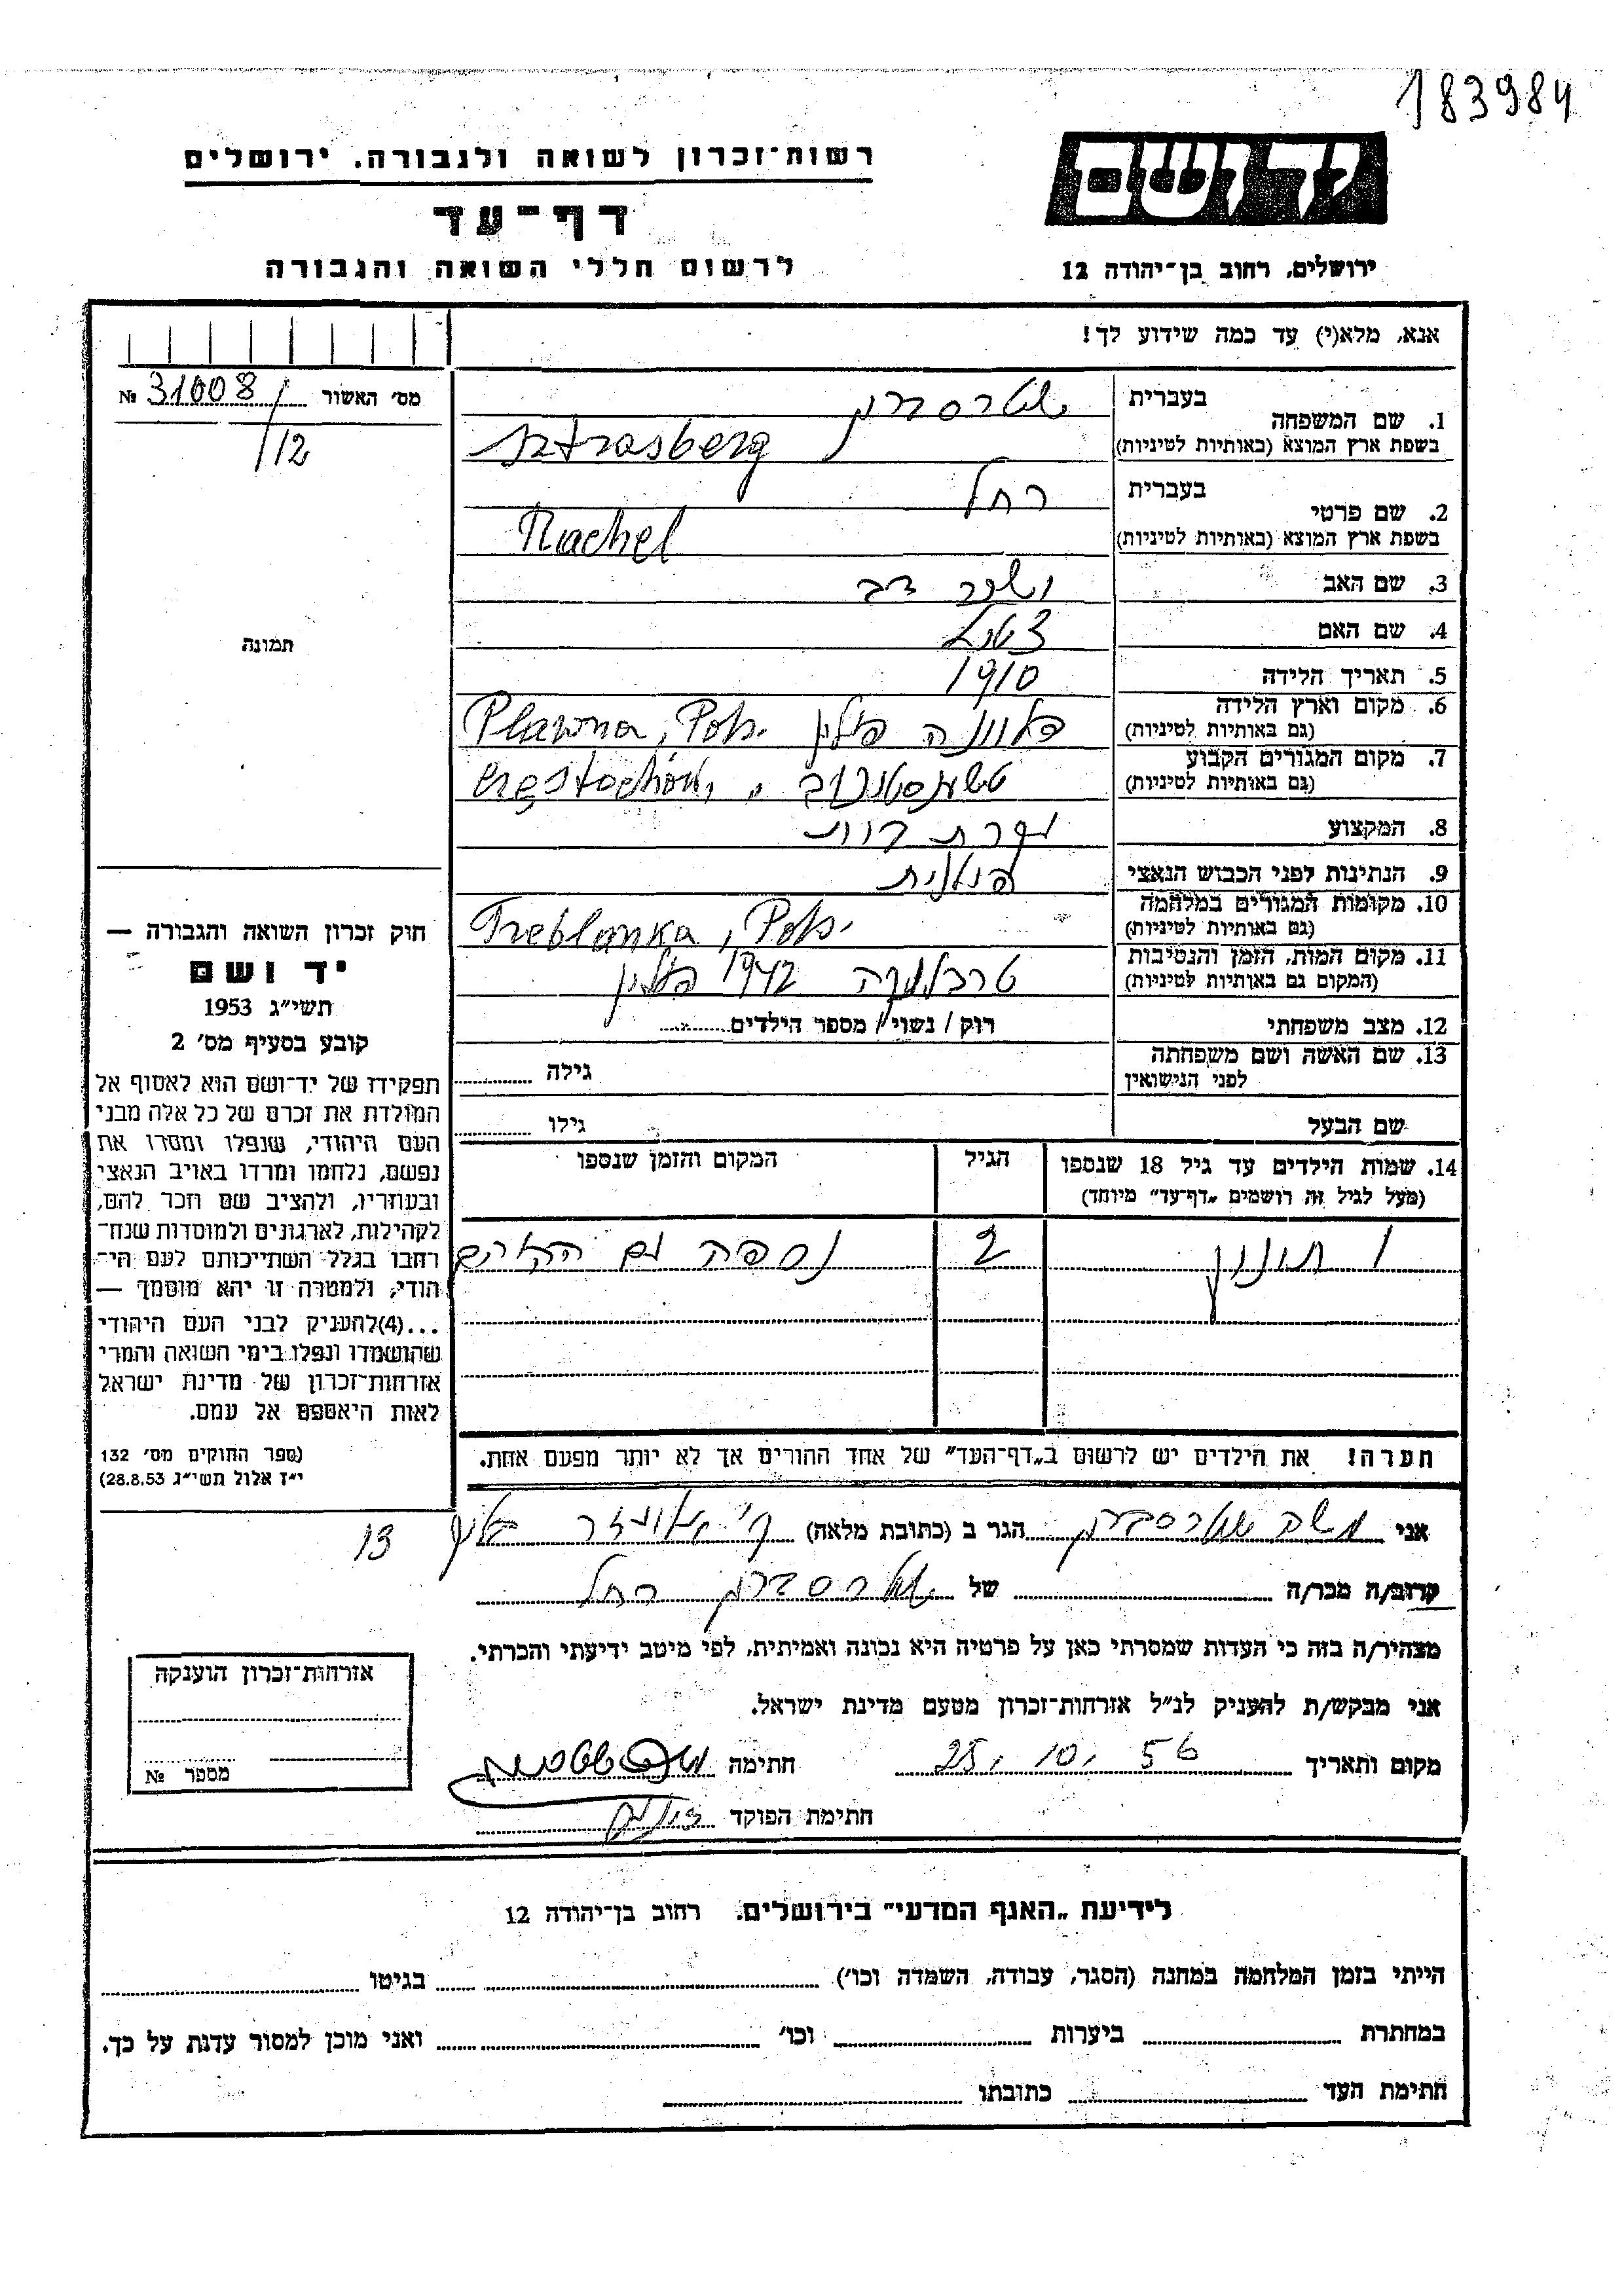 183984
יד ושם
רשות־זכרון לשואה ולגבורה. ירושלים
דף־עד
לרשום חללי השואה והגבורה
ירושלים, רחוב בן־יהודה 12
אנא, מלא(י) עד כמה שידוע לך!
מס׳ האשור 31008 №
/12
1. שם המשפחה
בעברית שטרסברג
בשפת ארץ המוצא (באותיות לטיניות) Sztrasberg
2. שם פרטי
בעברית רחל
בשפת ארץ המוצא (באותיות לטיניות) Rachel
3. שם האב יששכר דב
4. שם האם
5. תאריך הלידה 1910
6. מקום וארץ הלידה
(גם באותיות לטיניות) פלוונה פולין Plawna, Pols.
7. מקום המגורים הקבוע
(גם באותיות לטיניות)
8. המקצוע עקרת בית
9. הנתינות לפני הכבוש הנאצי פולנית
10. מקומות המגורים במלחמה
(גם באותיות לטיניות) Treblanka, Pols.
11. מקום המות, הזמן והנסיבות
(המקום גם באותיות לטיניות) טרבלנקה 1942 פולין
12. מצב משפחתי רוק / נשוי / מספר הילדים
13. שם האשה ושם משפחתה
לפני הנישואין גילה
שם הבעל גילו
14. שמות הילדים עד גיל 18 שנספו הגיל המקום והזמן שנספו
(מעל לגיל זה רושמים „דף־עד" מיוחד)
1 תינוק 2 נספה עם ההורים
הערה! את הילדים יש לרשום ב„דף־העד" של אחד ההורים אך לא יותר מפעם אחת.
תמונה
חוק זכרון השואה והגבורה —
יד ושם
תשי״ג 1953
קובע בסעיף מס׳ 2
תפקידו של יד־ושם הוא לאסוף אל
המולדת את זכרם של כל אלה מבני
העם היהודי, שנפלו ומסרו את
נפשם, נלחמו ומרדו באויב הנאצי
ובעוזריו, ולהציב שם וזכר להם,
לקהילות, לארגונים ולמוסדות שנח־
רחבו בגלל השתייכותם לעם הי־
הודי, ולמטרה זו יהא מוסמך —
...(4)להעניק לבני העם היהודי
שהושמדו ונפלו בימי השואה והמרי
אזרחות־זכרון של מדינת ישראל
לאות היאספם אל עמם.
(ספר החוקים מס׳ 132
י״ז אלול תשי״ג 28.8.53)
אני משה שטרסברג הגר ב (כתובת מלאה) 13
קרוב/ה מכר/ה של שטרסברג רחל
מצהיר/ה בזה כי העדות שמסרתי כאן על פרטיה היא נכונה ואמיתית, לפי מיטב ידיעתי והכרתי.
אני מבקש/ת להעניק לנ״ל אזרחות־זכרון מטעם מדינת ישראל.
מקום ותאריך 25. 10. 56 חתימה
חתימת הפוקד
אזרחות־זכרון הוענקה
מספר №
לידיעת „האגף המדעי" בירושלים. רחוב בן־יהודה 12
הייתי בזמן המלחמה במחנה (הסגר, עבודה, השמדה וכו׳) בגיטו
במחתרת ביערות וכו׳ ואני מוכן למסור עדות על כך.
חתימת העד כתובתו